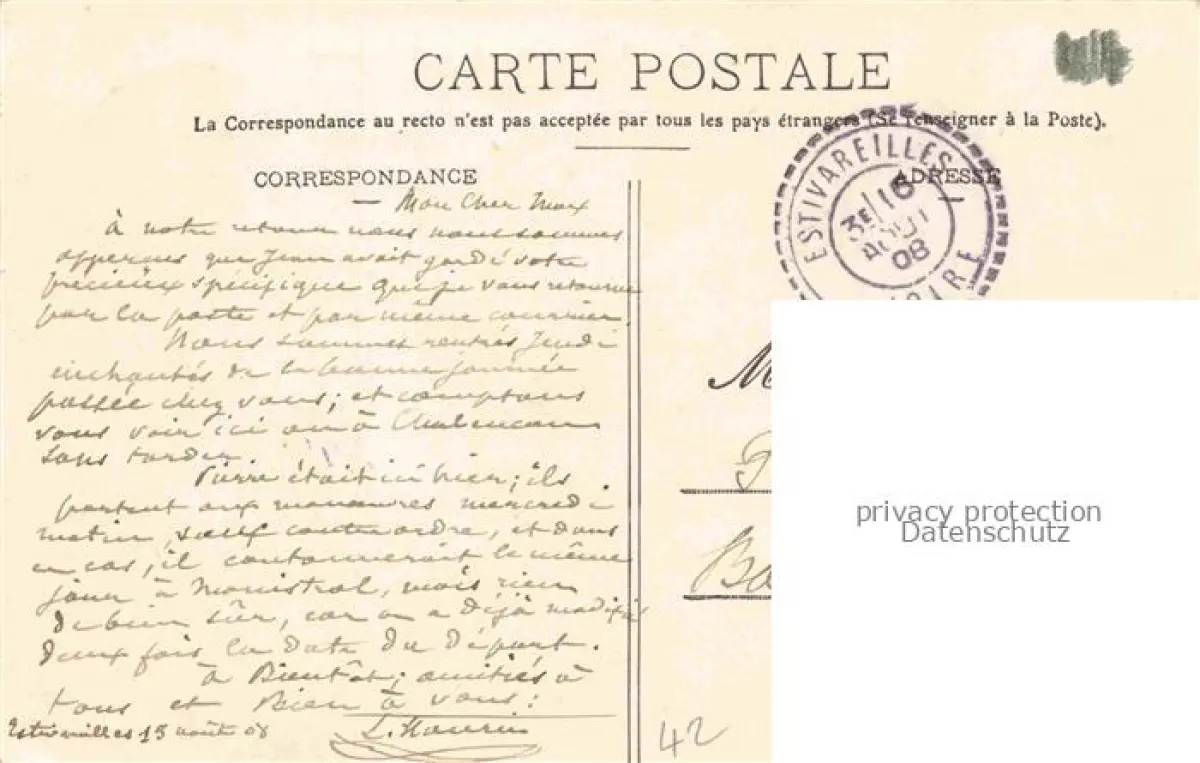 CARTE POSTALE
La Correspondance au recto n'est pas acceptée par tous les pays étrangers (Se renseigner à la Poste).
CORRESPONDANCE
ADRESSE
ESTIVAREILLES
3E 16
AOUT
08
LOIRE
Mon Cher Max
à notre retour nous nous sommes
apperçus que Jean avait gardé votre
précieux spécifique que je vous retourne
par la poste et par même courrier.
Nous sommes rentrés Jeudi
enchantés de la bonne journée
passée chez vous; et comptons
vous voir ici ou à Chalencon
sans tarder.
Pierre était ici hier; ils
partent aux manœuvres mercredi
matin, sauf contre ordre, et dans
ce cas, il cantonnerait le même
jour à Monistrol, mais rien
de bien sûr, car on a déjà modifié
deux fois la date du départ.
à Bientôt; amitiés à
tous et Bien à vous:
Estivareilles 15 août 08
L.
M
Ba
42
privacy protection
Datenschutz